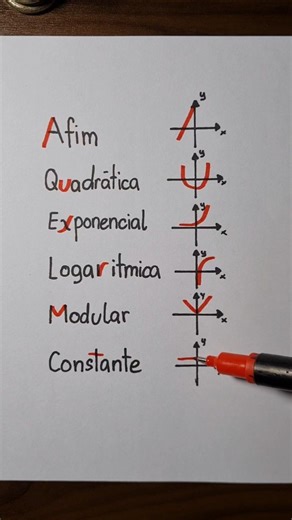 Afim
y
x
Quadrática
y
x
Exponencial
y
x
Logarítmica
y
x
Modular
y
x
Constante
y